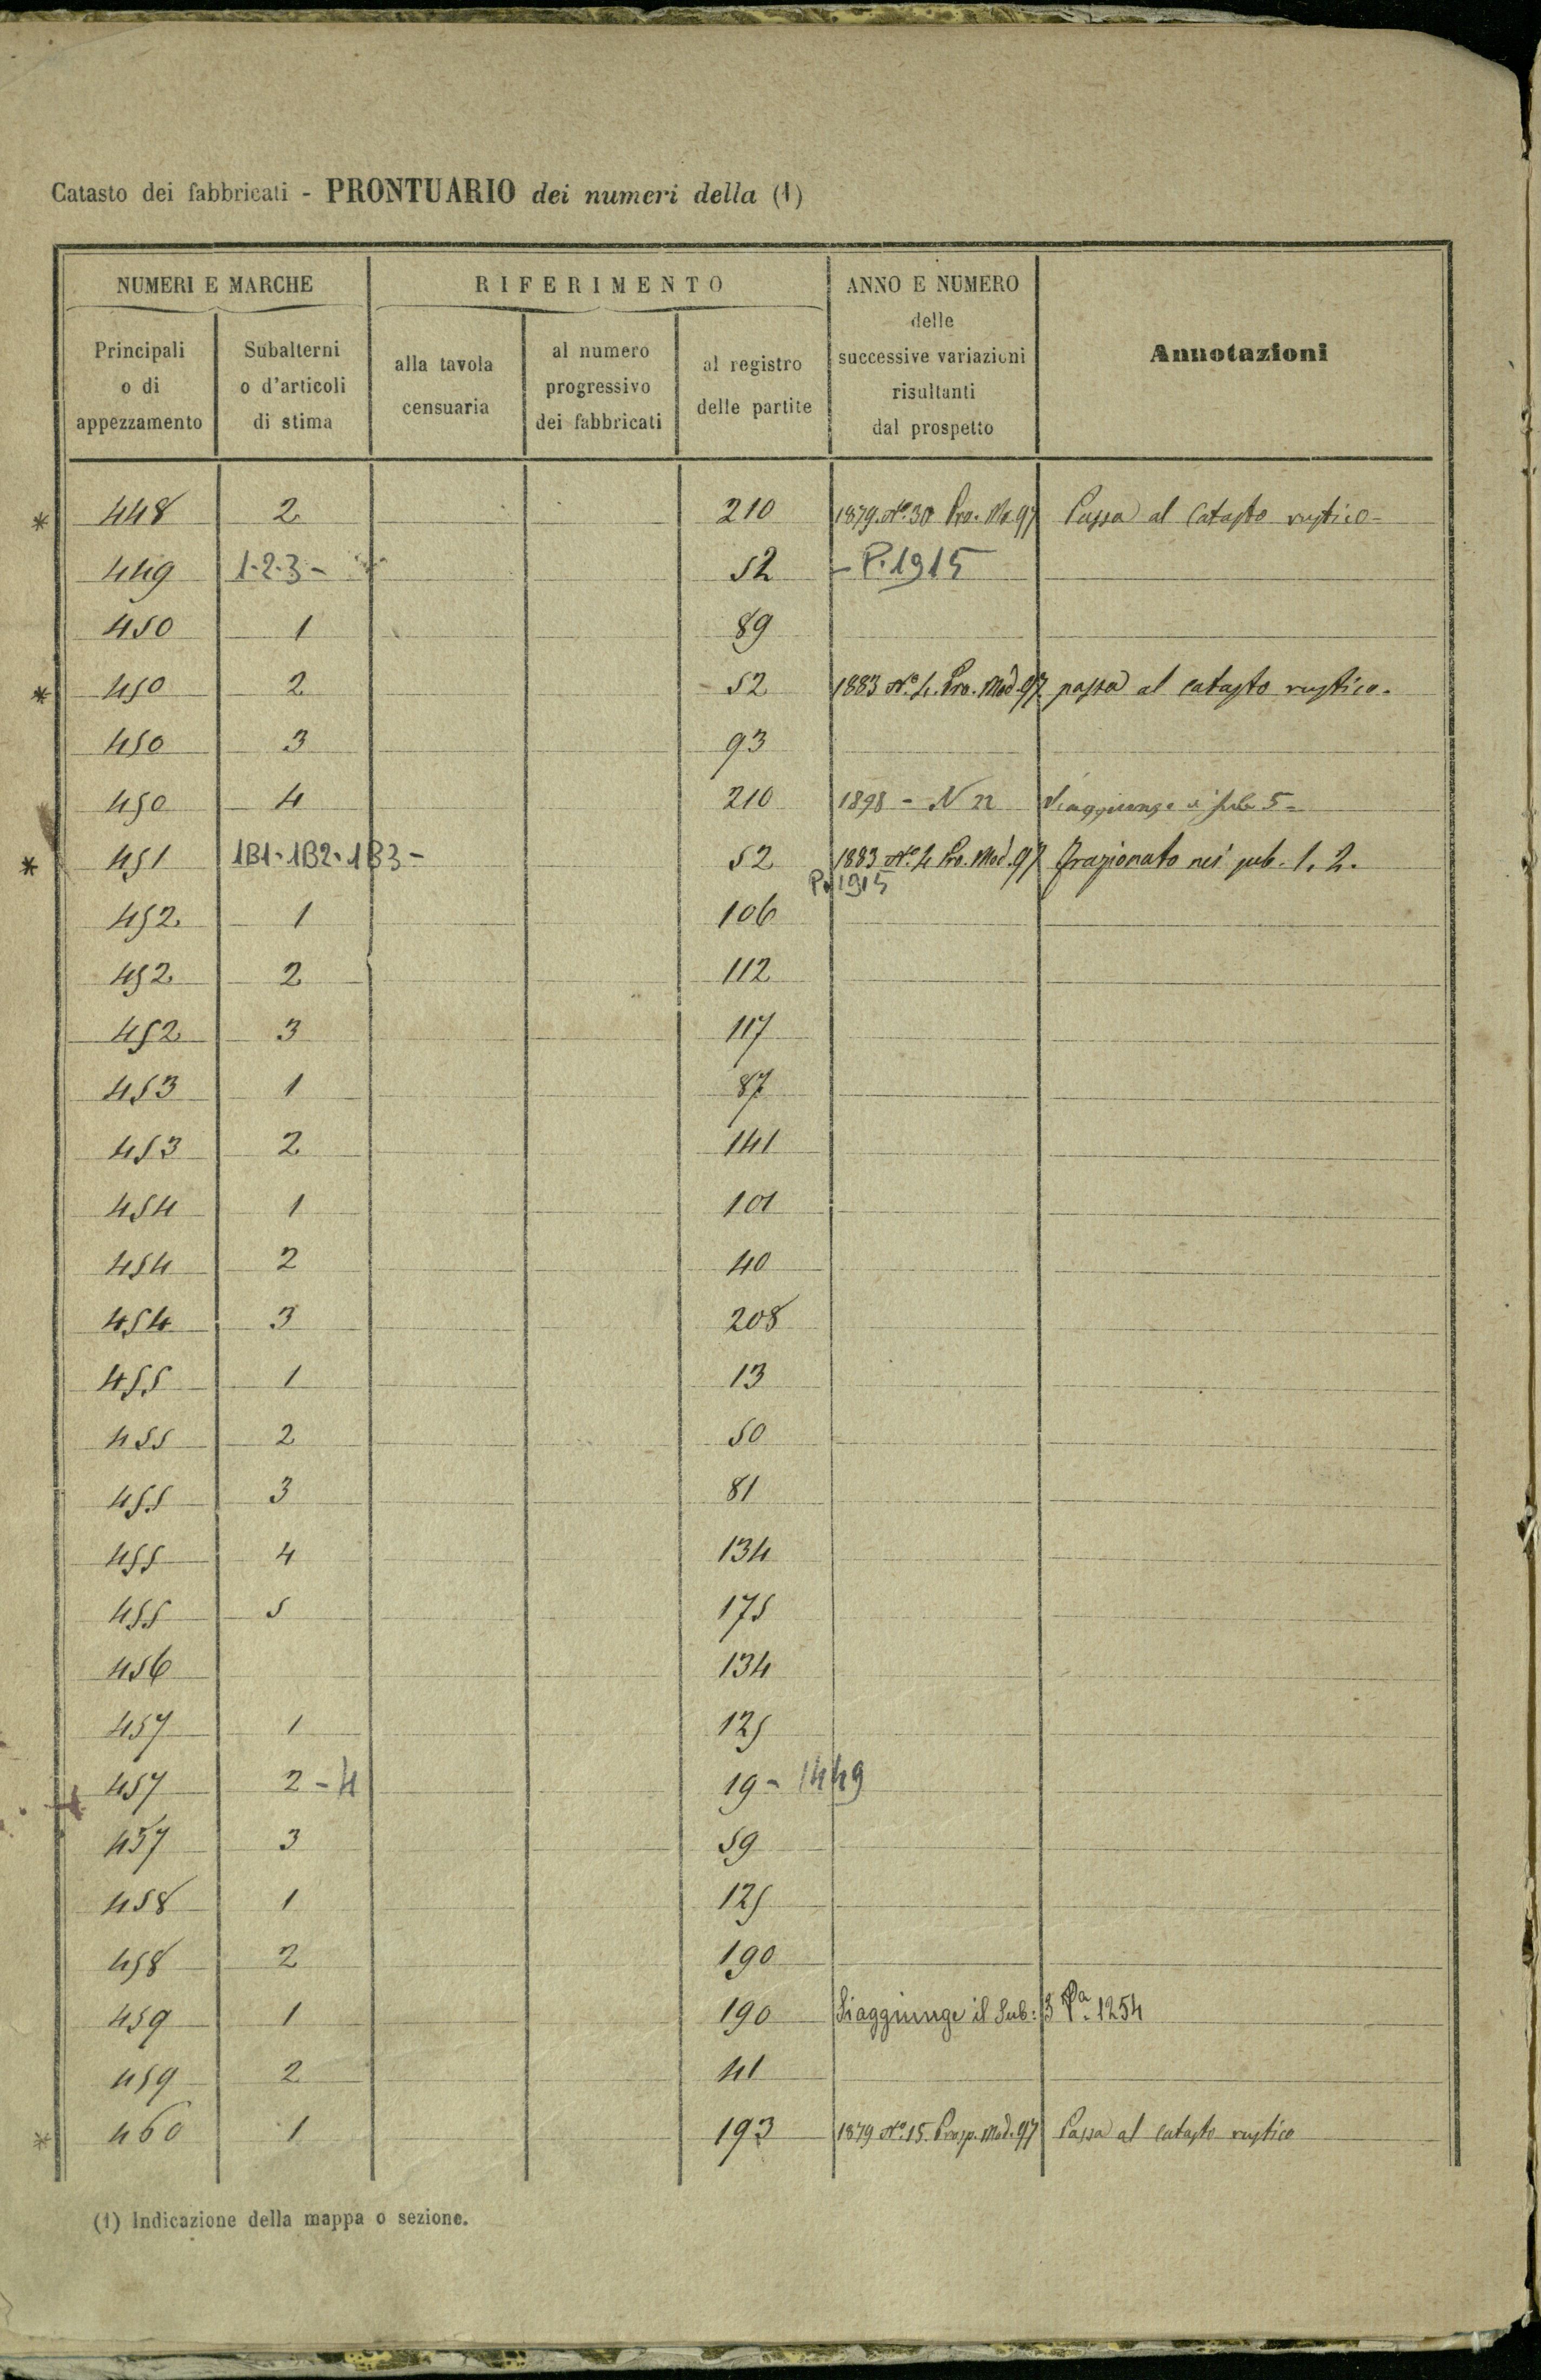 Catasto dei fabbricati - PRONTUARIO dei numeri della (1)
NUMERI E MARCHE RIFERIMENTO ANNO E NUMERO delle successive variazioni risultanti dal prospetto Annotazioni
Principali o di appezzamento Subalterni o d'articoli di stima alla tavola censuaria al numero progressivo dei fabbricati al registro delle partite
* 448 2 210 1879. N.º 30 Pro. Mo. 97 Passa al Catasto rustico -
449 1-2-3 - 52 - P. 1915
450 1 89
* 450 2 52 1883 N.º 4. Pro. Mod. 97 passa al catasto rustico.
450 3 93
450 4 210 1898 - N 22 Si aggiunge il sub 5 -
* 451 1B1-1B2-1B3 - 52 1883 N.º 4 Pro. Mod. 97 Frazionato nei sub. 1. 2.
P. 1915
452 1 106
452 2 112
452 3 117
453 1 87
453 2 141
454 1 101
454 2 40
454 3 208
455 1 13
455 2 50
455 3 81
455 4 134
455 5 175
456 134
457 1 125
457 2 - 4 19 - 1449
457 3 59
458 1 125
458 2 190
459 1 190 Si aggiunge il Sub: 3 Pª. 1254
459 2 41
* 460 1 193 1879 N.º 15. Prosp. Mod. 97 Passa al catasto rustico
(1) Indicazione della mappa o sezione.